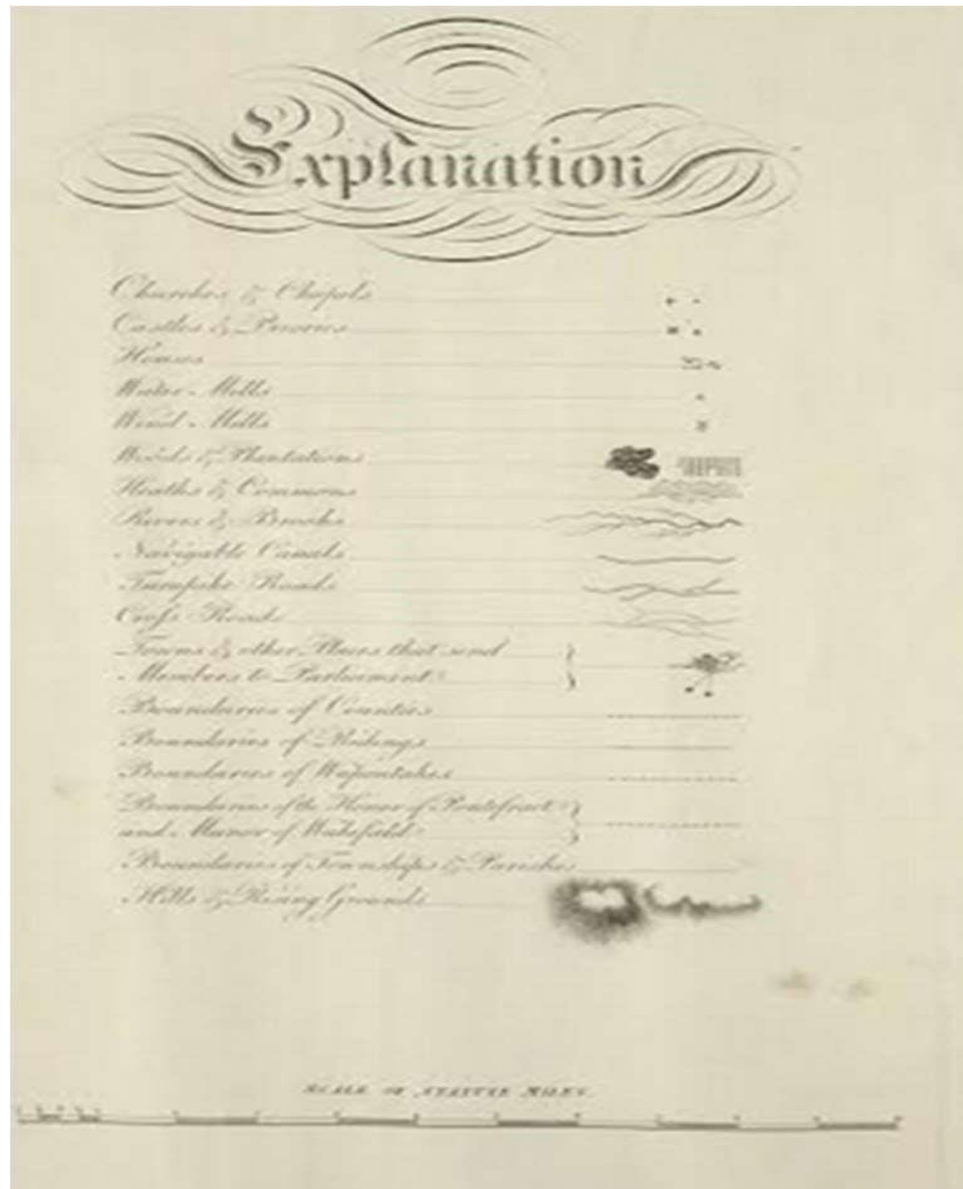 Explanation
Churches & Chapels
Castles & Priories
Houses
Water-Mills
Wind-Mills
Woods & Plantations
Heaths & Commons
Rivers & Brooks
Navigable Canals
Turnpike Roads
Cross Roads
Towns & other Places that send
Members to Parliament
Boundaries of Counties
Boundaries of Ridings
Boundaries of Wapontakes
Boundaries of the Honor of Pontefract
and Manor of Wakefield
Boundaries of Townships & Parishes
Hills & Rising Grounds
SCALE OF STATUTE MILES